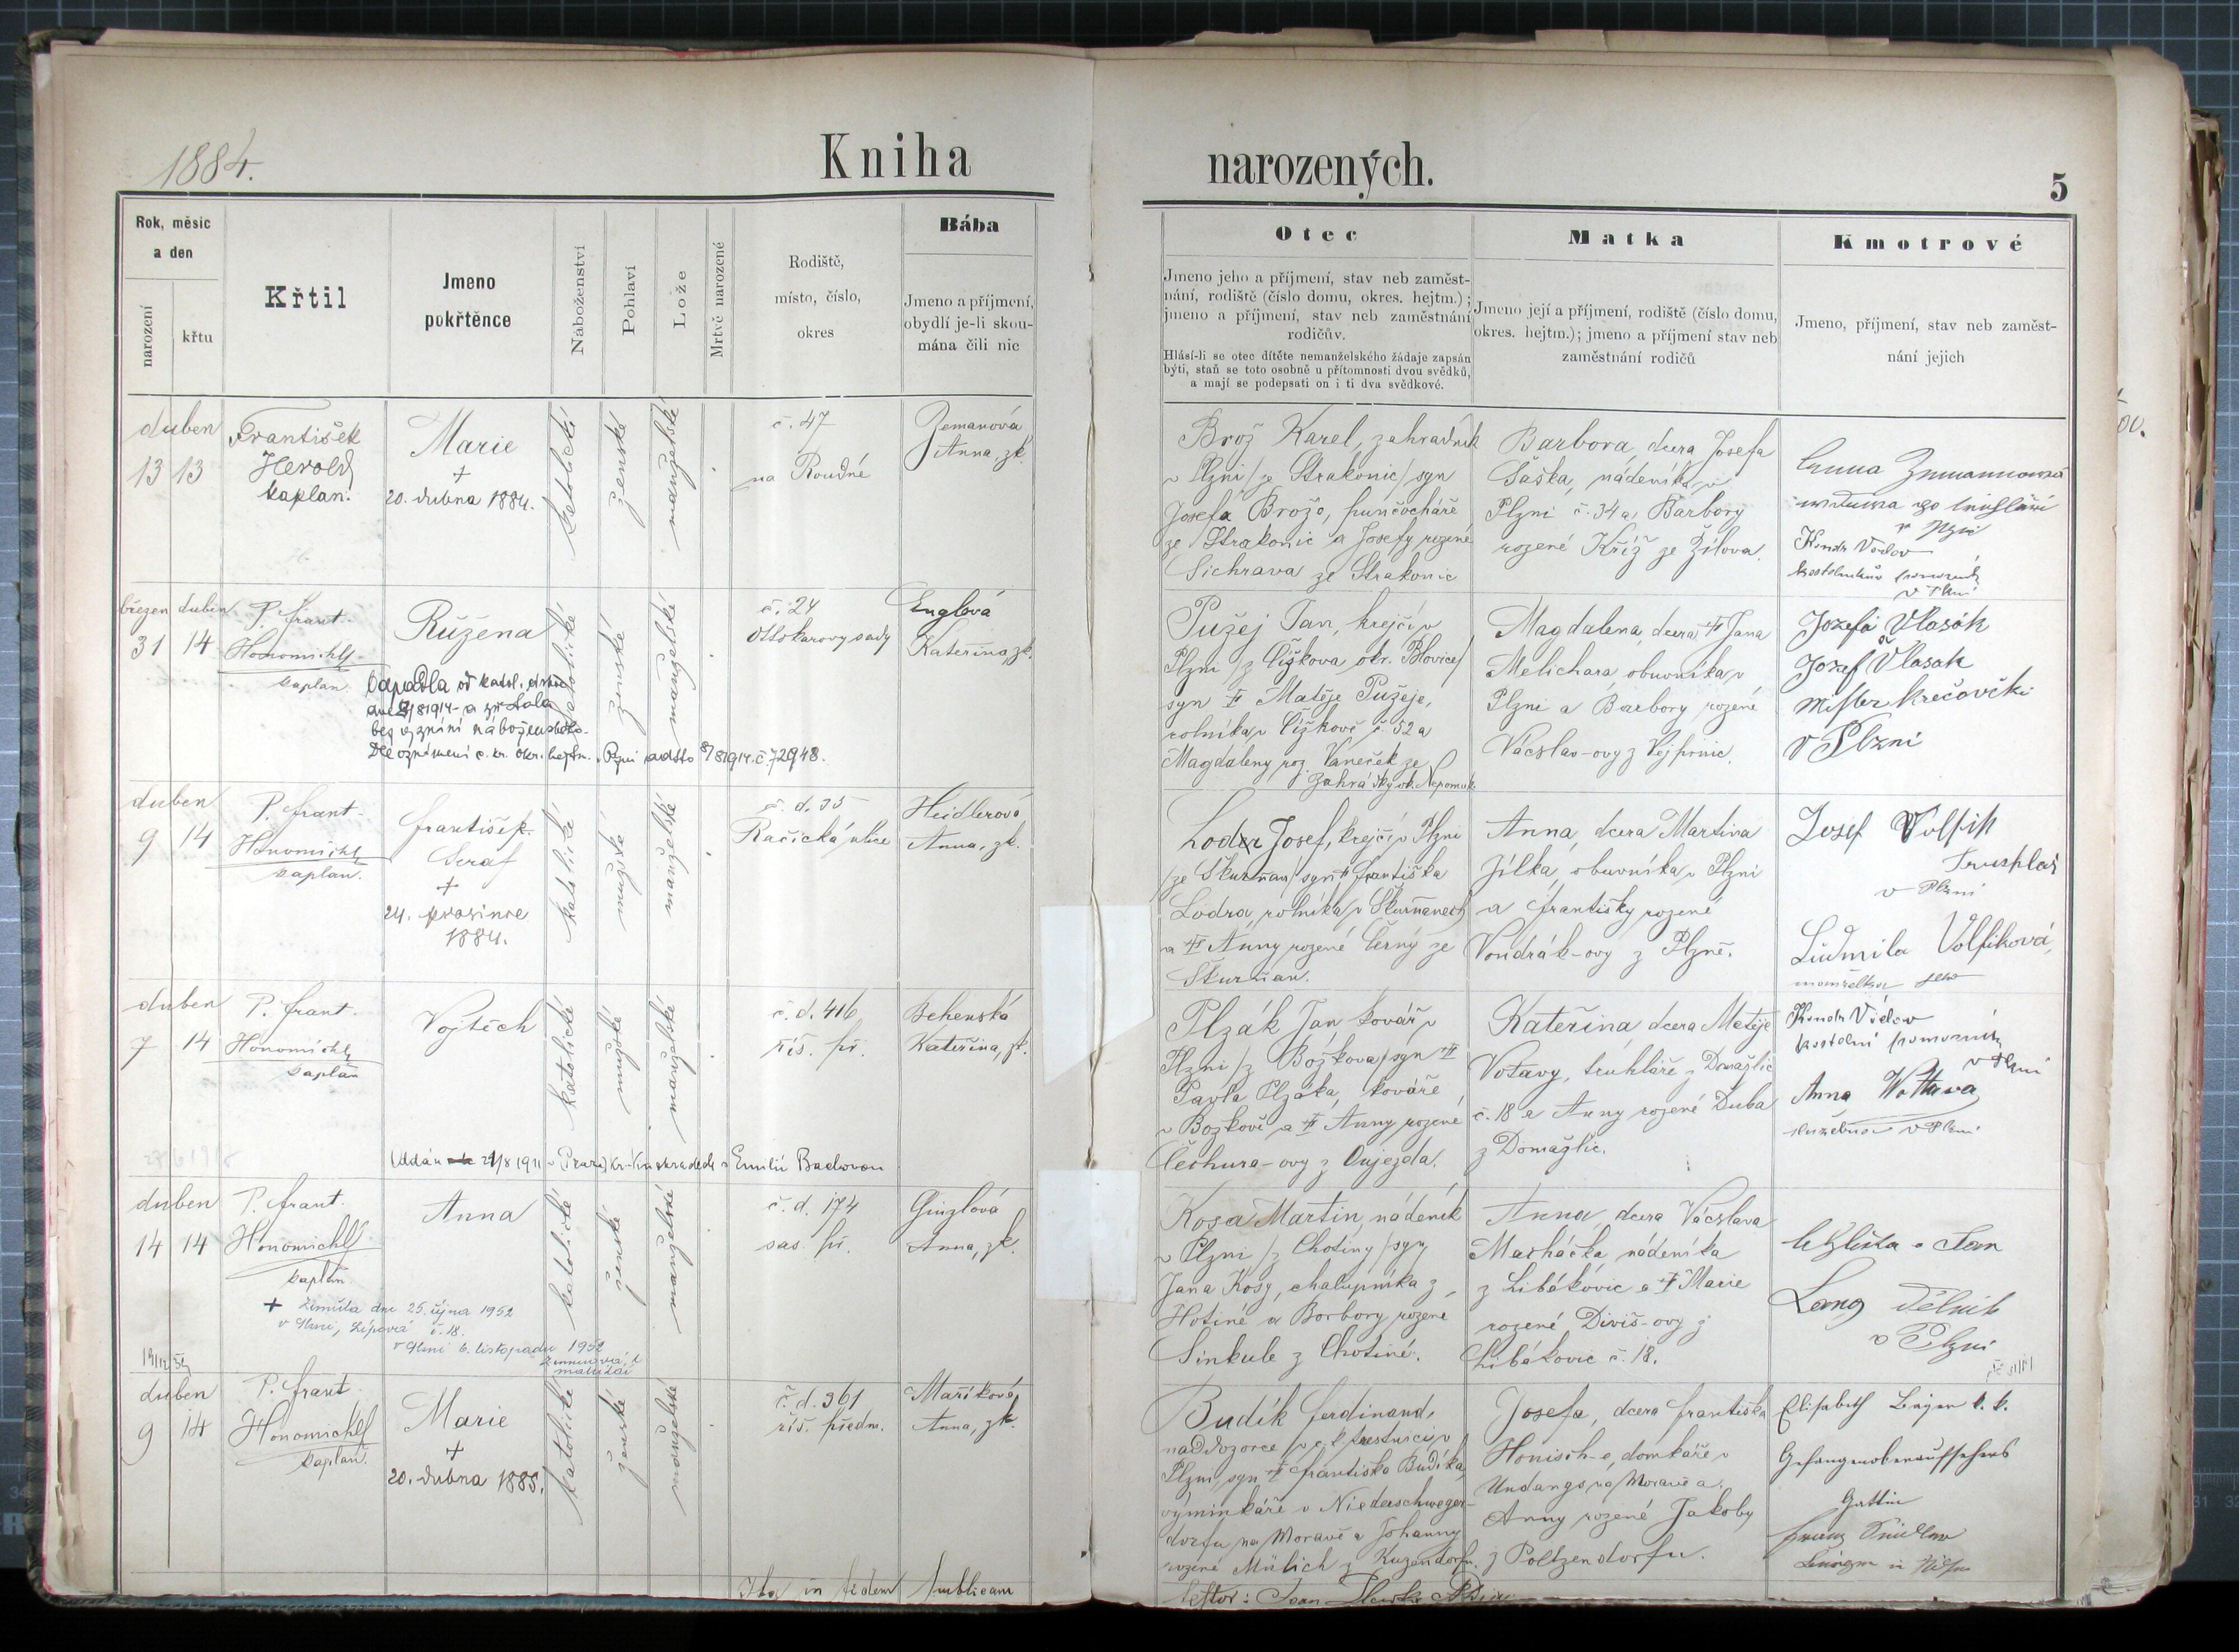 1884.
Kniha
narozených.
5
Rok, měsíc
a den
narození
křtu
Křtil
Jmeno
pokřtěnce
Náboženství
Pohlaví
Lože
Mrtvě narozené
Rodiště,
místo, číslo,
okres
Bába
Jmeno a příjmení,
obydlí je-li skou-
mána čili nic
Otec
Jmeno jeho a příjmení, stav neb zaměst-
nání, rodiště (číslo domu, okres. hejtm.);
jmeno a příjmení, stav neb zaměstnání
rodičův.
Hlásí-li se otec dítěte nemanželského žádaje zapsán
býti, staň se toto osobně u přítomnosti dvou svědků,
a mají se podepsati on i ti dva svědkové.
Matka
Jmeno její a příjmení, rodiště (číslo domu,
okres. hejtm.); jmeno a příjmení stav neb
zaměstnání rodičů
Kmotrové
Jmeno, příjmení, stav neb zaměst-
nání jejich
duben
13 13
František
Herold
kaplan.
Marie
+
20. dubna 1884.
katolické
ženské
manželské
č. 47
na Roudné
Zemanová
Anna, zk.
Brož Karel, zahradník
v Plzni /ze Strakonic/ syn
Josefa Brože, punčocháře
ze Strakonic a Josefy rozené
Sichrava ze Strakonic
Barbora, dcera Josefa
Šaška, nádeníka v
Plzni č. 34 a Barbory
rozené Kříž ze Žilova.
Anna
v Plzni
březen duben
31 14
P. Frant.
Honomichl
kaplan.
Růžena
katolické
ženské
manželské
č. 24
Ottokarovy sady
Englová
Kateřina, zk.
Odpadla od katol.
dne 8/8 1914 a zůstala
bez vyznání náboženského.
Dle oznámení c. kr. okr. hejtm. v Plzni ddto 8/8 1914 č. 72948.
Pužej Jan, krejčí v
Plzni /z Čižkova okr. Blovice/
syn † Matěje Pužeje,
rolníka v Čížkově č. 52 a
Magdaleny roz. Vaneček ze
Zahrádky ok. Nepomuk.
Magdalena, dcera † Jana
Melichara, obuvníka v
Plzni a Barbory rozené
Václav-ovy z Vejprnic.
Jozefa Vlasák
Jozef Vlasak
mistr krečovčki
v Plzni
duben
9 14
P. Frant.
Honomichl
kaplan.
František
Seraf
+
24. prosince
1884.
katolické
mužské
manželské
č. d. 35
Račická ulice
Heidlerová
Anna, zk.
Lodr Josef, krejčí v Plzni
/ze Skurňan/ syn † Františka
Lodra, rolníka v Skurňanech
a † Anny rozené Černý ze
Skurňan.
Anna, dcera Martina
Jílka, obuvníka v Plzni
a Františky rozené
Vondrák-ovy z Plzně.
Josef Volfík
v Plzni
Ludmila Volfiková,
manželka
duben
7 14
P. Frant.
Honomichl
kaplan
Vojtěch
katolické
mužské
manželské
č. d. 416
říš. př.
Behenská
Kateřina, zk.
Oddán 21/8 1911 v Praze Kr. Vinohradech s Emilií
Plzák Jan, kovář v
Plzni /z Božkova/ syn †
Pavla Plzáka, kováře
v Božkově a † Anny rozené
Čechura-ovy z Oujezda.
Kateřina, dcera Matěje
Votavy, truhláře z Domažlic
č. 18 a Anny rozené Duba
z Domažlic.
kostelní pomocník
v Plzni
Anna Wottawa
služebná v Plzni
duben
14 14
P. Frant.
Honomichl
kaplan.
Anna
katolické
ženské
manželské
č. d. 174
sas. př.
Ginzlová
Anna, zk.
+ Zemřela dne 25. října 1952
v Plzni, Lípová č. 18.
v Plzni 6. listopadu 1952
Kosa Martin, nádeník
v Plzni /z Chotiny/ syn
Jana Kosy, chalupníka z
Hotiné a Barbory rozené
Sinkule z Chotiné.
Anna, dcera Václava
Macháčka, nádeníka
z Libákovic a † Marie
rozené Diviš-ovy z
Libákovic č. 18.
Jan
Lang dělník
v Plzni
duben
9 14
P. Frant.
Honomichl
kaplan.
Marie
+
20. dubna 1885.
katolické
ženské
manželské
č. d. 361
říš. předm.
Maříková
Anna, zk.
Budík Ferdinand,
naddozorce v c. k. trestnici v
Plzni, syn † Františka Budíka,
výminkáře v Niederschweger-
dorfu na Moravě a Johanny
rozené Mülich z Kuzendorfu.
Josefa, dcera Františka
Honisch-e, domkáře v
Undangs na Moravě a
Anny rozené Jakoby
z Poltzendorfu.
Elisabeth k. k.
Gefangenoberaufsehers
Gattin
in Pilsen
Ita in fidem publicam